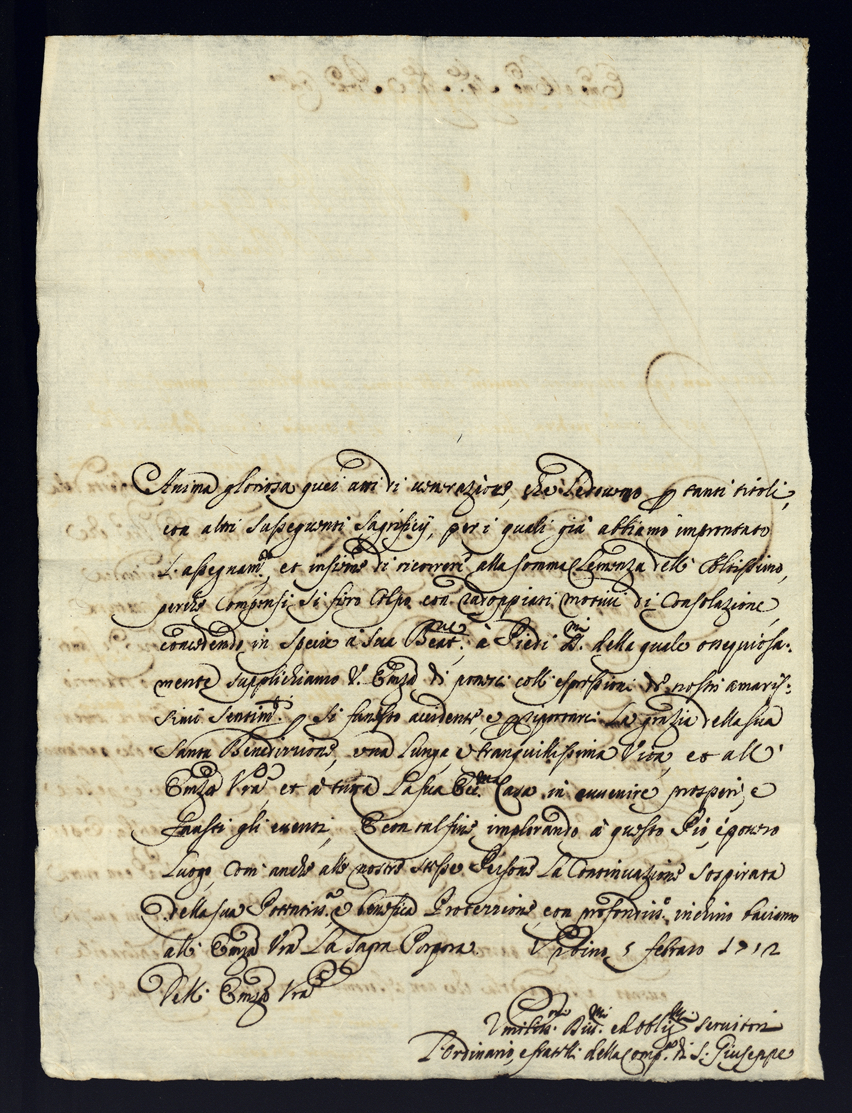 Anima gloriosa quei atti di venerazione, che Le dovemo p tanti titoli,
con altri susseguenti Sagrificij, per i quali già abbiamo improntato
L'assegnam.to, et insieme di ricorrere alla somma Clemenza dell' Altissimo,
perche compensi si fiero Colpo con radoppiati motivi di Consolazione,
concedendo in specie à Sua Beat.ne à Piedi della quale ossequiosa-
mente supplichiamo V. Emza di porsi coll' espressioni de nostri amaris-
simi Sentim.ti p si funesto accidente, e p riportare La grazia della sua
Santa Benedizzione, una Lunga e tranquillissima Vita, et all'
Emza Vra, et à tutta La sua Ecc.ma Casa in avvenire prosperi, e
fausti gli eventi, E con tal fine implorando à questo Pio, e povero
Luogo, com' anche alle nostre stesse Persone La Continuazione sospirata
della sua Potentiss.a e benefica Protezzione, con profondiss.o inchino baciamo
all' Emza Vra La Sagra Porpora. Urbino 5 febraro 1712
Dell' Emza Vra
Umiliss.mi Div.mi ed Obblig.mi Servitori
L'Ordinario, e fratelli della Comp.a di S. Giuseppe